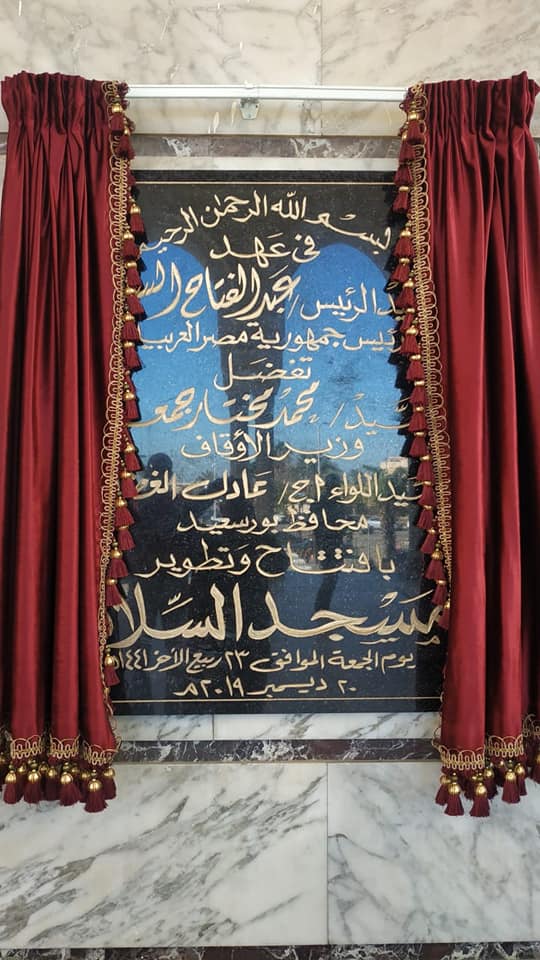 بسم الله الرحمن الرحيم
في عهد
يد الرئيس / عبد الفتاح الس
ئيس جمهورية مصر العربي
تفضل
سيد / محمد مختار جمع
وزير الأوقاف
سيد اللواء أ.ح / عادل الغ
محافظ بورسعيد
بافتتاح وتطوير
مسجد السلا
يوم الجمعة الموافق ٢٣ ربيع الآخر ١٤٤١ه
٢٠ ديسمبر ٢٠١٩م